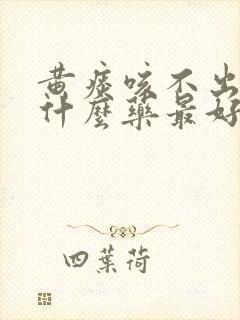 黄痰咳不出
什麼藥最好
四葉荷